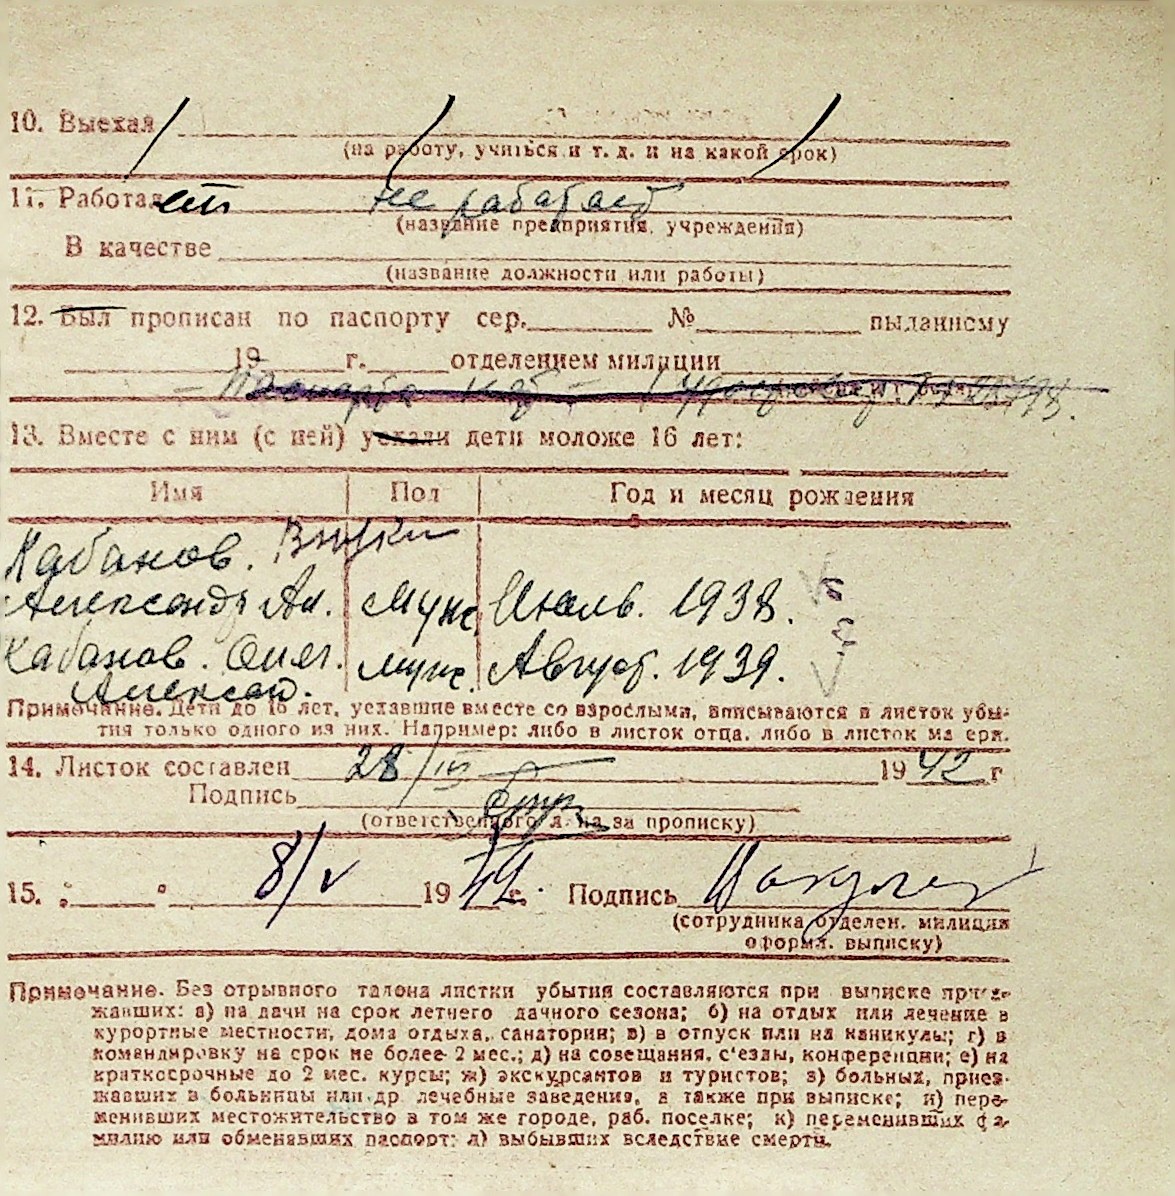 10. Выехал
(на работу, учиться и т. д. и на какой срок)
11. Работает не работает
(название предприятия, учреждения)
В качестве
(название должности или работы)
12. Был прописан по паспорту сер. № выданному
19 г. отделением милиции
13. Вместе с ним (с ней) уехали дети моложе 16 лет:
Имя Пол Год и месяц рождения
Кабанов. Внуки
Александр Ал. муж. Июль. 1938.
Кабанов. Олег. муж. Август. 1939.
Алексан.
Примечание. Дети до 16 лет, уехавшие вместе со взрослыми, вписываются в листок убы-
тия только одного из них. Например: либо в листок отца, либо в листок матери.
14. Листок составлен 28/IV 1942 г
Подпись
(ответственного л-на за прописку)
15. 8/V 1942 г. Подпись
(сотрудника отделен. милиции
оформл. выписку)
Примечание. Без отрывного талона листки убытия составляются при выписке приез-
жавших: а) на дачи на срок летнего дачного сезона; б) на отдых или лечение в
курортные местности, дома отдыха, санатории; в) в отпуск или на каникулы; г) в
командировку на срок не более 2 мес.; д) на совещания, с'езды, конференции; е) на
краткосрочные до 2 мес. курсы; ж) экскурсантов и туристов; з) больных, приез-
жавших в больницы или др лечебные заведения, а также при выписке; и) пере-
менивших местожительство в том же городе, раб. поселке; к) переменивших фа-
милию или обменявших паспорт; л) выбывших вследствие смерти.